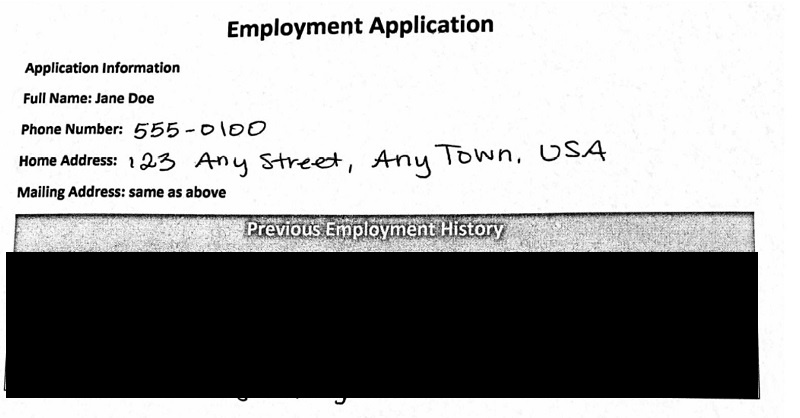 Employment Application
Application Information
Full Name: Jane Doe
Phone Number: 555-0100
Home Address: 123 Any Street, Any Town, USA
Mailing Address: same as above
Previous Employment History